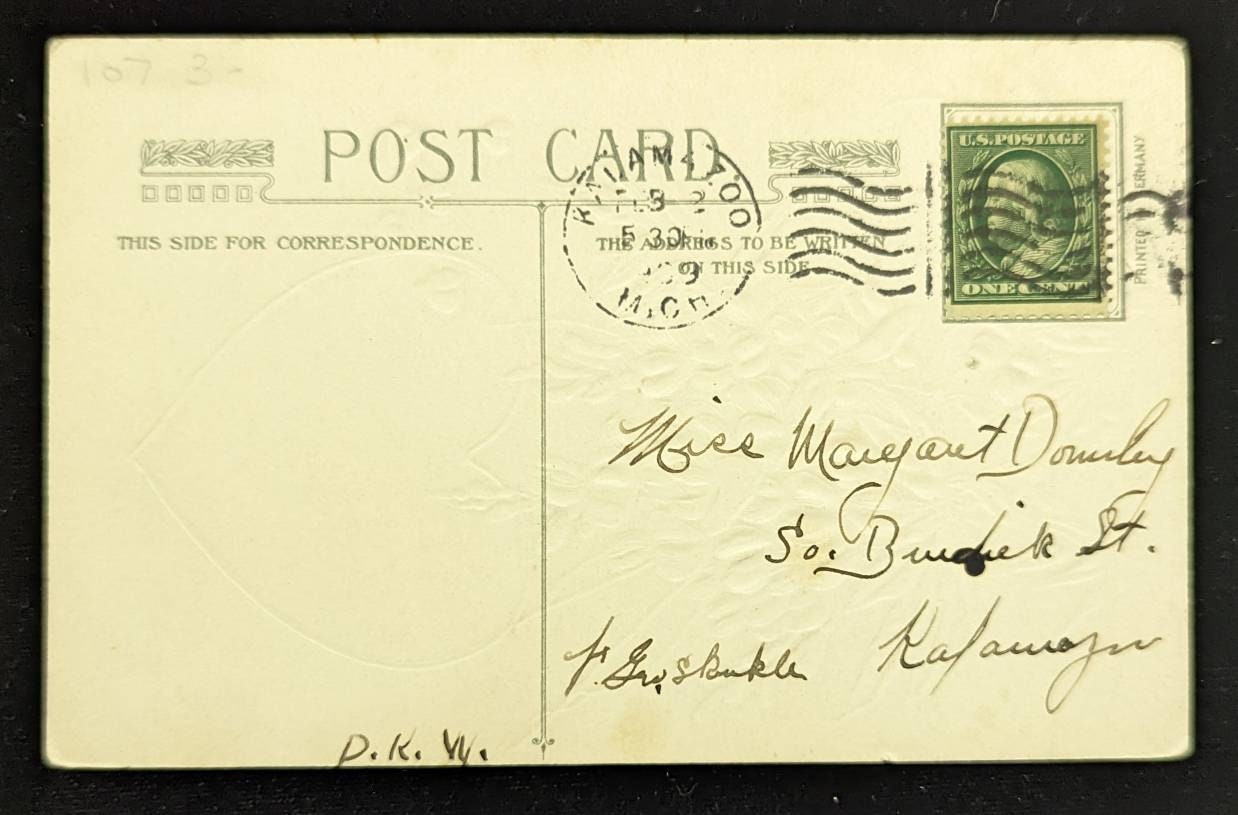 107 3-
POST CARD
THIS SIDE FOR CORRESPONDENCE.
THE ADDRESS TO BE WRITTEN
ON THIS SIDE
KALAMAZOO
FEB 2
5 30
MICH.
U.S. POSTAGE
ONE CENT
PRINTED GERMANY
Miss Margaret
So. Burdick St.
Kalamazoo
D.K.W.